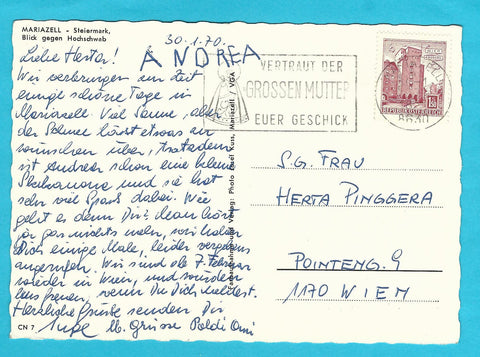 MARIAZELL - Steiermark,
Blick gegen Hochschwab
30.1.70.
ANDREA
Liebe Herta!
Wir verbringen zur Zeit
einige schöne Tage in
Mariazell. Viel Sonne, aber
der Schnee lässt etwas zu
wünschen über, trotzdem
ist Andrea schon eine kleine
Skikanone und sie hat
sehr viel Spass dabei. Wie
geht es denn Dir? Man hört
ja gar nichts mehr, wir haben
Dich einige Male, leider vergebens
angerufen. Wir sind ab 7. Februar
wieder in Wien, und würden
uns freuen, wenn Du Dich meldest.
Herzliche Grüsse senden Dir
Inge lb. Grüsse Poldi Omi
CN 7
Photo Josef Kuss, Mariazell / VGA
VERTRAUT DER
GROSSEN MUTTER
EUER GESCHICK
8630
REPUBLIK ÖSTERREICH
S.G. FRAU
HERTA PINGGERA
POINTENG. 9
1170 WIEN